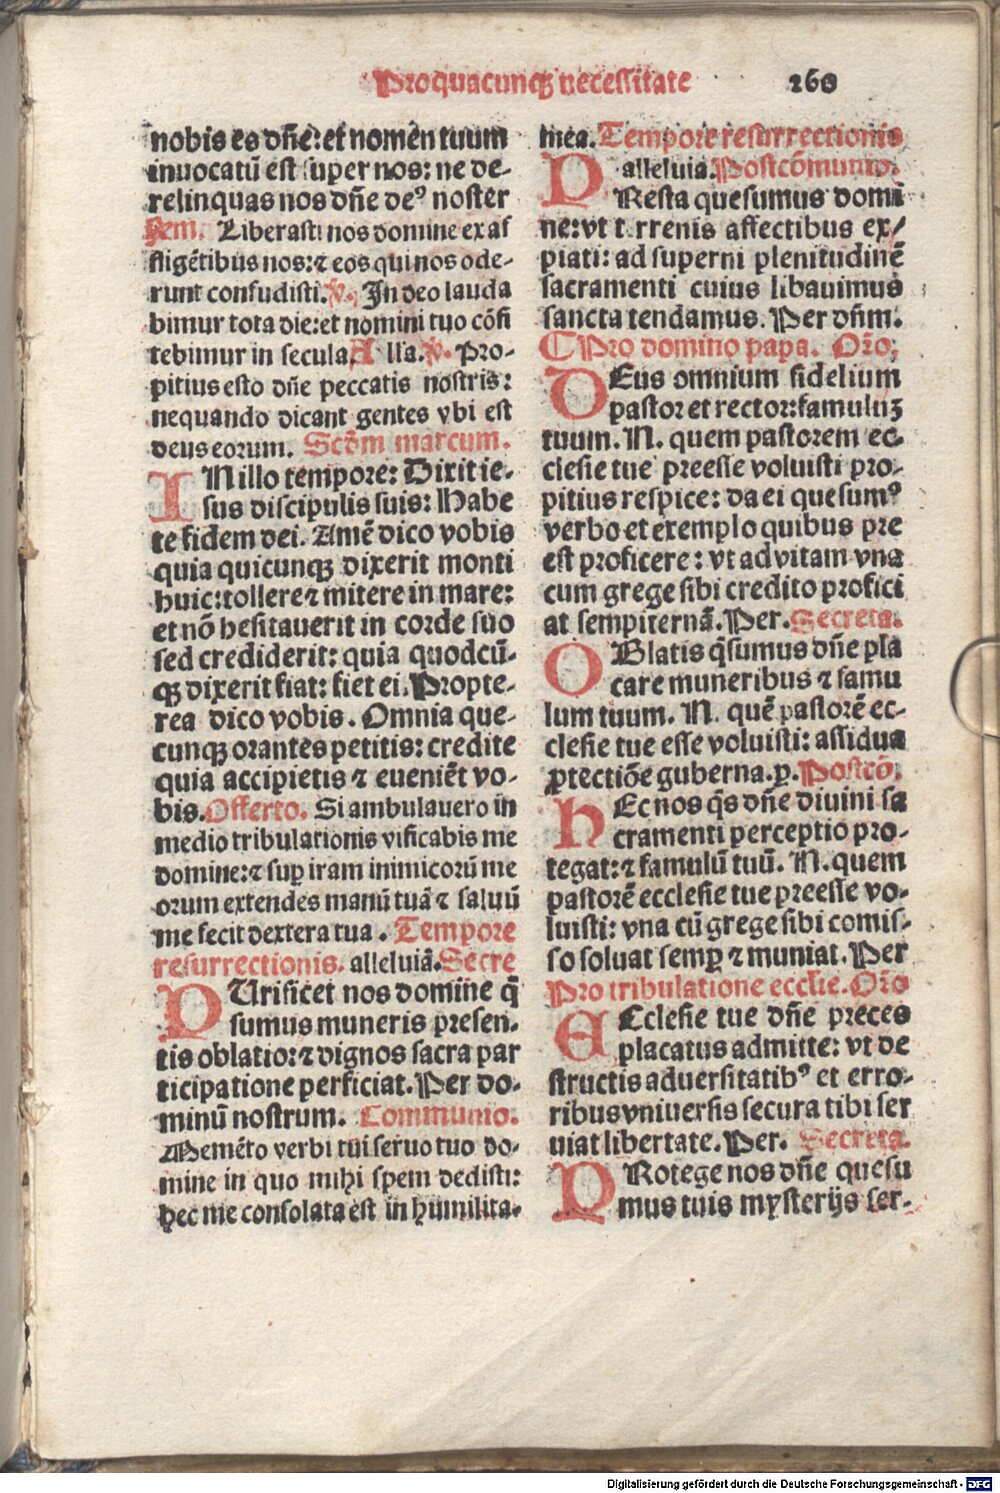 Pro quacunqꝫ necessitate 260
nobis es dñe: et nomen tuum
inuocatū est super nos: ne de-
relinquas nos dñe deꝰ noster
Liberasti nos domine ex af
fligētibus nos: ⁊ eos qui nos ode-
runt confudisti. ℣. In deo lauda
bimur tota die: et nomini tuo cōfi
tebimur in secula. Alla. ℣. Pro-
pitius esto dñe peccatis nostris:
nequando dicant gentes vbi est
deus eorum. Scd̄m marcum.
IN illo tempore: Dixit ie-
sus discipulis suis: Habe
te fidem dei. Amē dico vobis
quia quicunqꝫ dixerit monti
huic: tollere ⁊ mitere in mare:
et nō hesitauerit in corde suo
sed crediderit: quia quodcū-
qꝫ dixerit fiat: fiet ei. Propte-
rea dico vobis. Omnia que-
cunqꝫ orantes petitis: credite
quia accipietis ⁊ eueniēt vo-
bis. Offerto. Si ambulauero in
medio tribulationis vificabis me
domine: ⁊ suꝑ iram inimicorū me
orum extendes manū tuā ⁊ saluū
me fecit dextera tua. Tempore
resurrectionis. alleluiā. Secre
PUrificet nos domine q̄
sumus muneris presen-
tis oblatio: ⁊ dignos sacra par
ticipatione perficiat. Per do-
minū nostrum. Communio.
Memēto verbi tui seruo tuo do-
mine in quo mihi spem dedisti:
hec me consolata est in humilita-
mea. Tempore resurrectionis
alleluia. Postcōmunio.
PResta quesumus domi
ne: vt terrenis affectibus ex/
piati: ad superni plenitudinē
sacramenti cuius libauimus
sancta tendamus. Per dñm.
¶ Pro domino papa. Oro;
DEus omnium fidelium
pastor et rector: famuluꝫ
tuum. N. quem pastorem ec-
clesie tue preesse voluisti pro-
pitius respice: da ei quesumꝰ
verbo et exemplo quibus pre
est proficere: vt ad vitam vna
cum grege sibi credito profici
at sempiternā. Per. Secreta.
OBlatis q̄sumus dñe pla
care muneribus ⁊ famu
lum tuum. N. quē pastorē ec-
clesie tue esse voluisti: assidua
ꝓtectiōe guberna. ꝑ. Postcō.
HEc nos q̄s dñe diuini sa
cramenti perceptio pro-
tegat: ⁊ famulū tuū. N. quem
pastorē ecclesie tue preesse vo-
luisti: vna cū grege sibi comis-
so soluat semꝑ ⁊ muniat. Per
Pro tribulatione ecclīe. Oro
ECclesie tue dñe preces
placatus admitte: vt de
structis aduersitatibꝰ et erro-
ribus vniuersis secura tibi ser
uiat libertate. Per. Secreta.
PRotege nos dñe quesu
mus tuis mysterijs ser-
Digitalisierung gefördert durch die Deutsche Forschungsgemeinschaft - DFG